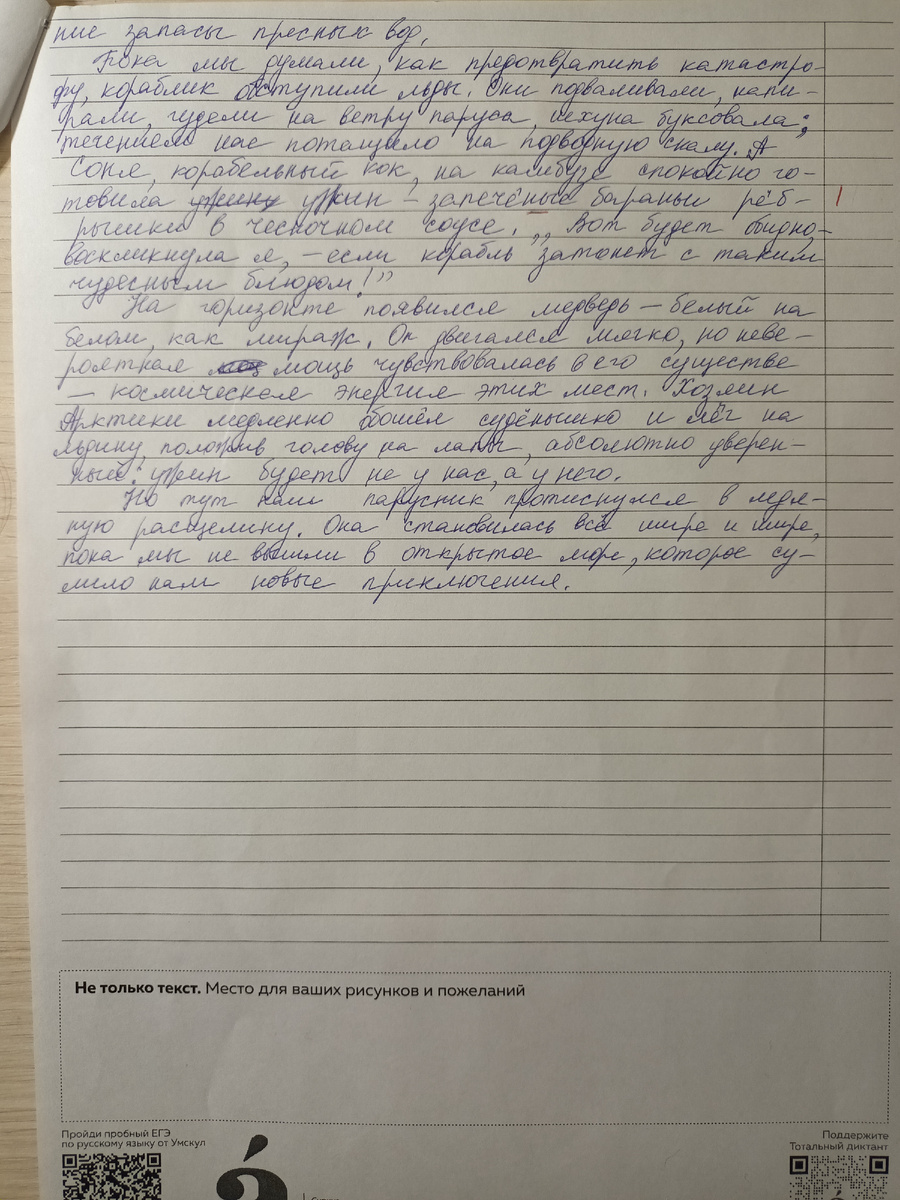 ние запасы пресных вод.
Пока мы думали, как предотвратить катастро-
фу, кораблик обступили льды. Они подваливали, напи-
рали, гудели на ветру паруса, шхуна буксовала;
течением нас потащило на подводную скалу. А
Соня, корабельный кок, на камбузе спокойно го-
товила ужин – запечёные бараньи рёб-
рышки в чесночном соусе. „Вот будет обидно, –
воскликнула я, – если корабль затонет с таким
чудесным блюдом!”
На горизонте появился медведь – белый на
белом, как мираж. Он двигался мягко, но неве-
роятная мощь чувствовалась в его существе
– космическая энергия этих мест. Хозяин
Арктики медленно обошёл судёнышко и лёг на
льдину, положив голову на лапы, абсолютно уверен-
ный: ужин будет не у нас, а у него.
Но тут наш парусник протиснулся в ледя-
ную расщелину. Она становилась всё шире и шире,
пока мы не вышли в открытое море, которое су-
лило нам новые приключения.
Не только текст. Место для ваших рисунков и пожеланий
Пройди пробный ЕГЭ
по русскому языку от Умскул
á
Поддержите
Тотальный диктант